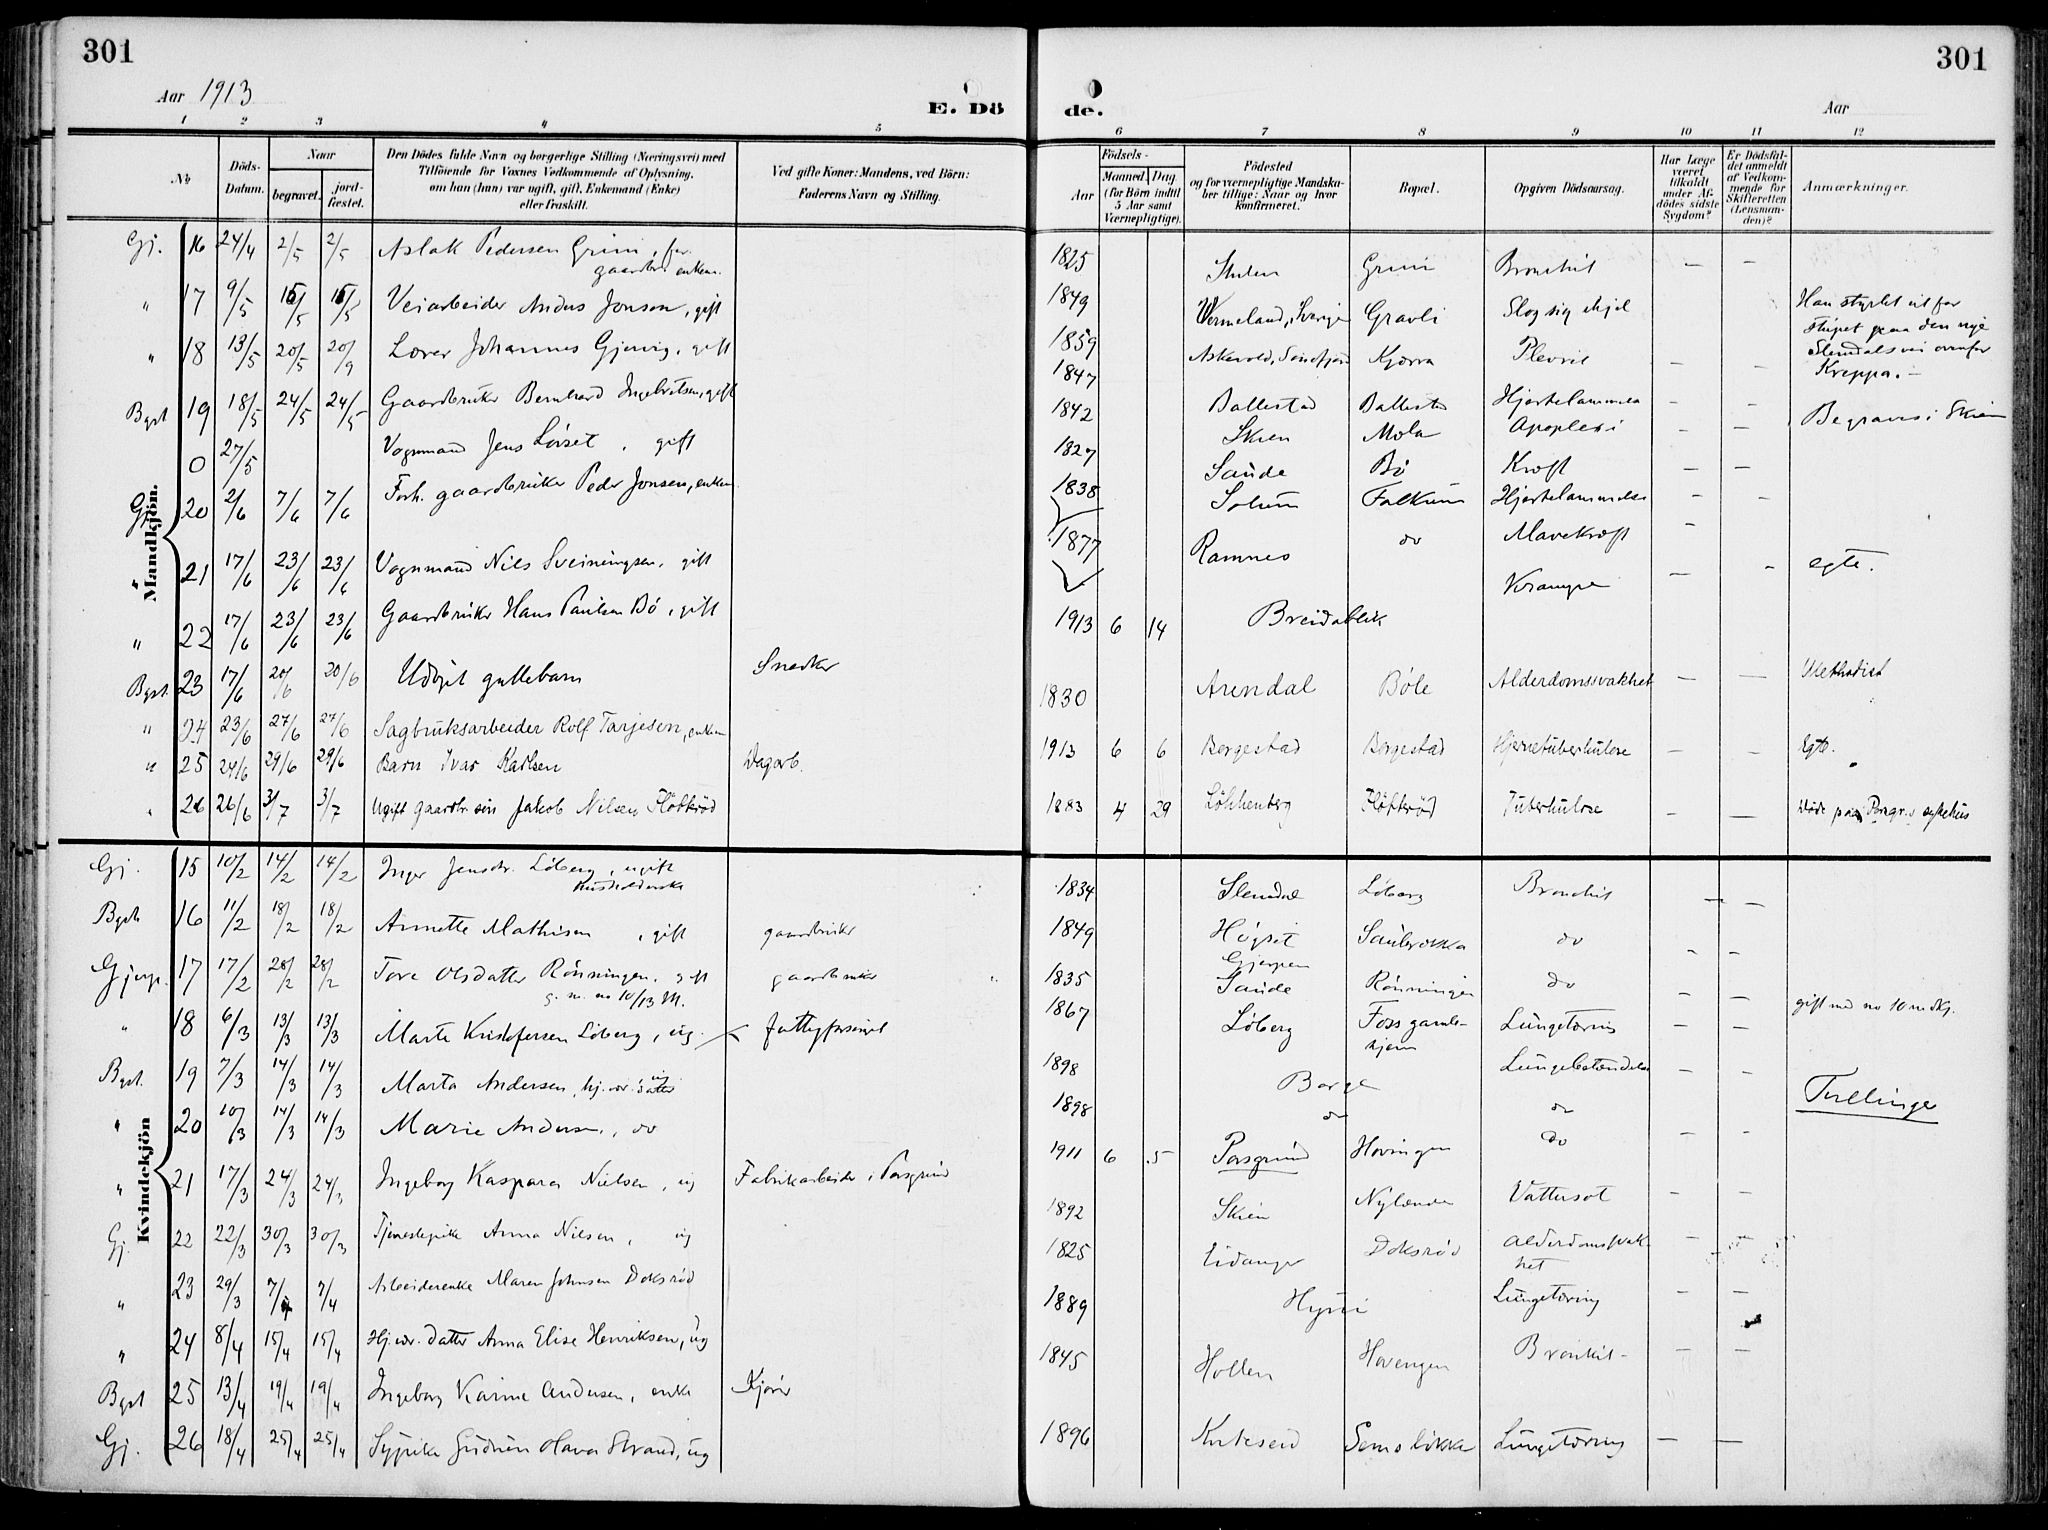 301
301
Aar 1913
E. Dö
de.
Aar
1 2 3 4 5
6 7 8 9 10 11 12
No
Döds-
Datum.
Naar
begravet.
jord-
fæstet.
Den Dödes fulde Navn og borgerlige Stilling (Næringsvei) med
Tilföiende for Voxnes Vedkommende af Oplysning,
om han (hun) var ugift, gift, Enkemand (Enke)
eller fraskilt.
Ved gifte Koner: Mandens, ved Börn:
Faderens Navn og Stilling.
Födsels-
Aar
Maaned. Dag.
(for Börn indtil
5 Aar samt
Værnepligtige).
Födested
og for værnepligtige Mandska-
ber tillige: Naar og hvor
konfirmeret.
Bopæl.
Opgiven Dödsaarsag.
Har Læge
været
tilkaldt
under Af-
dödes sidste
Sygdom?
Er Dödsfal-
det anmeldt
af Vedkom-
mende for
Skifteretten
(Lensman-
den)?
Anmærkninger.
Mandkjön.
Gj. 16 24/4 2/5 2/5 Aslak Pedersen Grini, før.
gaardbr. enkem. 1825 Grini Bronchit — —
" 17 9/5 15/5 15/5 Veiarbeider Anders Jonson, gift 1849 Vermeland, Sverige Gravli Slog sig ihjel Han styrtet ut for
stupet paa den nye
Slemdalsvei ovenfor
Kreppa. —
" 18 13/5 20/5 20/9 Lærer Johannes Gjervig, gift 1859 Askevold, Söndfjord Kjørra Plevrit — —
Bgst 19 18/5 24/5 24/5 Gaardbruker Bernhard Ingebretsen, gift 1847 Ballestad Ballestad Hjertelammelse — —
0 27/5 Vognmand Jens Löiset, gift 1842 Skien Mæla Apoplexi — — Begraves i Skien
Gj. 20 2/6 7/6 7/6 Forh. gaardbruker Peder Jonsen, enkem. 1827 Saude Bö Kræft — —
" 21 17/6 23/6 23/6 Vognmand Nils Sveinungsen, gift 1838 Solum Falkum Hjertelammelse — —
" 22 17/6 23/6 23/6 Gaardbruker Hans Paulsen Bö, gift 1877 Ramnes do Mavekræft —
Bgst. 23 17/6 20/6 20/6 Udöpt guttebarn Snedker 1913 6 14 Breidablik Krampe — - egte.
" 24 23/6 27/6 27/6 Sagbruksarbeider Rolf Tarjesen, enkem 1830 Arendal Böle Alderdomssvakhet — — Methodist
" 25 24/6 29/6 29/6 Barn Ivar Karlsen Dagarb. 1913 6 6 Borgestad Borgestad Hjernetuberkulose — — Egte.
" 26 26/6 3/7 3/7 Ugift gaardbr. søn Jakob Nilsen Flöttröd 1883 4 29 Flöttröd Tuberkulose — — Döde paa Porsgr.s sykehus
Kvindekjön
Gj. 15 10/2 14/2 14/2 Inger Jensdr. Löberg, ugift
husholderske 1834 Slemdal Löberg Bronchit — —
Bgst. 16 11/2 18/2 18/2 Annette Mathisen, gift gaardbruker 1849 Högset
Gjerpen do — —
Gjerp. 17 17/2 28/2 28/2 Tore Olsdatter Rönningen, gift
g. m. no 10/13 M. gaardbruker 1835 Saude Rönningen do — — gift med no 10 mdkj.
" 18 6/3 13/3 13/3 Marte Kristofersen Löberg, ug. fattigforsörget 1867 Löberg Foss gamle-
hjem Lungetæring — —
Bgst. 19 7/3 14/3 14/3 Marta Andersen, hj.vær. datter ug 1898 Borge Lungebetændelse — —
" 20 10/3 14/3 14/3 Marie Andersen, do 1898 do do — — Tvillinger
" 21 17/3 24/3 24/3 Ingeborg Kaspara Nielsen, ug Fabrikarbeider i Porsgrund 1911 6 5 Porsgrund Hovingen do — —
Gj. 22 22/3 30/3 30/3 Tjenestepike Anna Nilsen, ug 1892 Skien Nylænde Vattersot — —
" 23 29/3 7/4 7/4 Arbeiderenke Maren Johnsen Doksröd 1825 Eidanger Doksröd Alderdomssvak-
het — —
" 24 8/4 15/4 15/4 Hj.vær. datter Anna Elise Henriksen, ug 1889 Hyni Lungetæring — —
Bgst 25 13/4 19/4 19/4 Ingeborg Karine Andersen, enke 1845 Hollen Hovengen Bronkit — —
Gj. 26 18/4 25/4 25/4 Sypike Gudrun Strand, ug 1896 Lungetæring — —